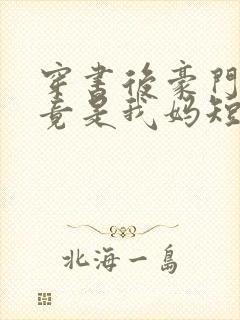 穿書後豪門
竟是我妈短
北海一島